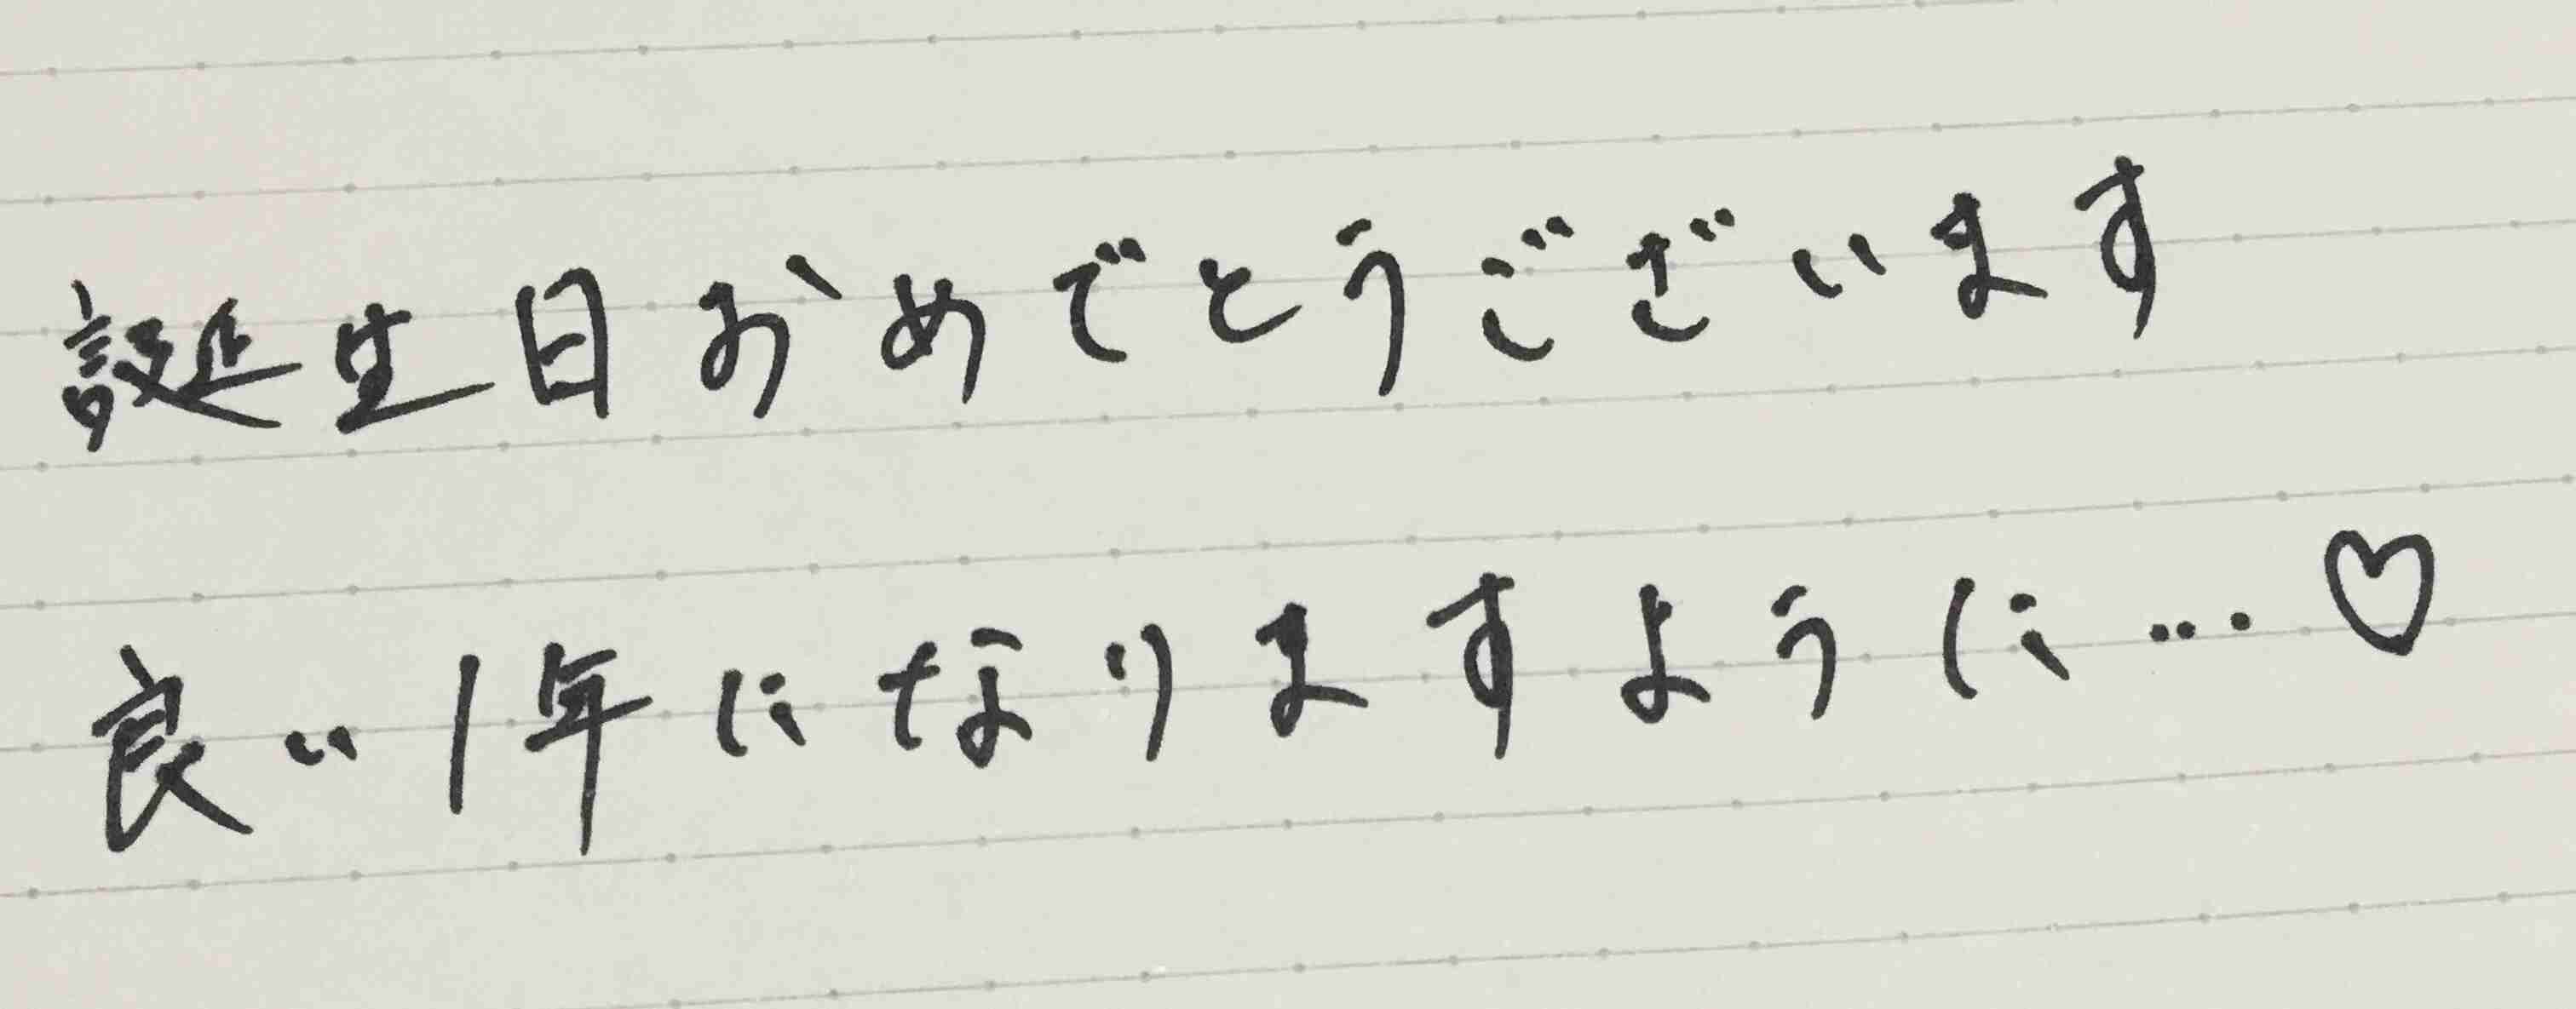 誕生日おめでとうございます
良い1年になりますように…♡